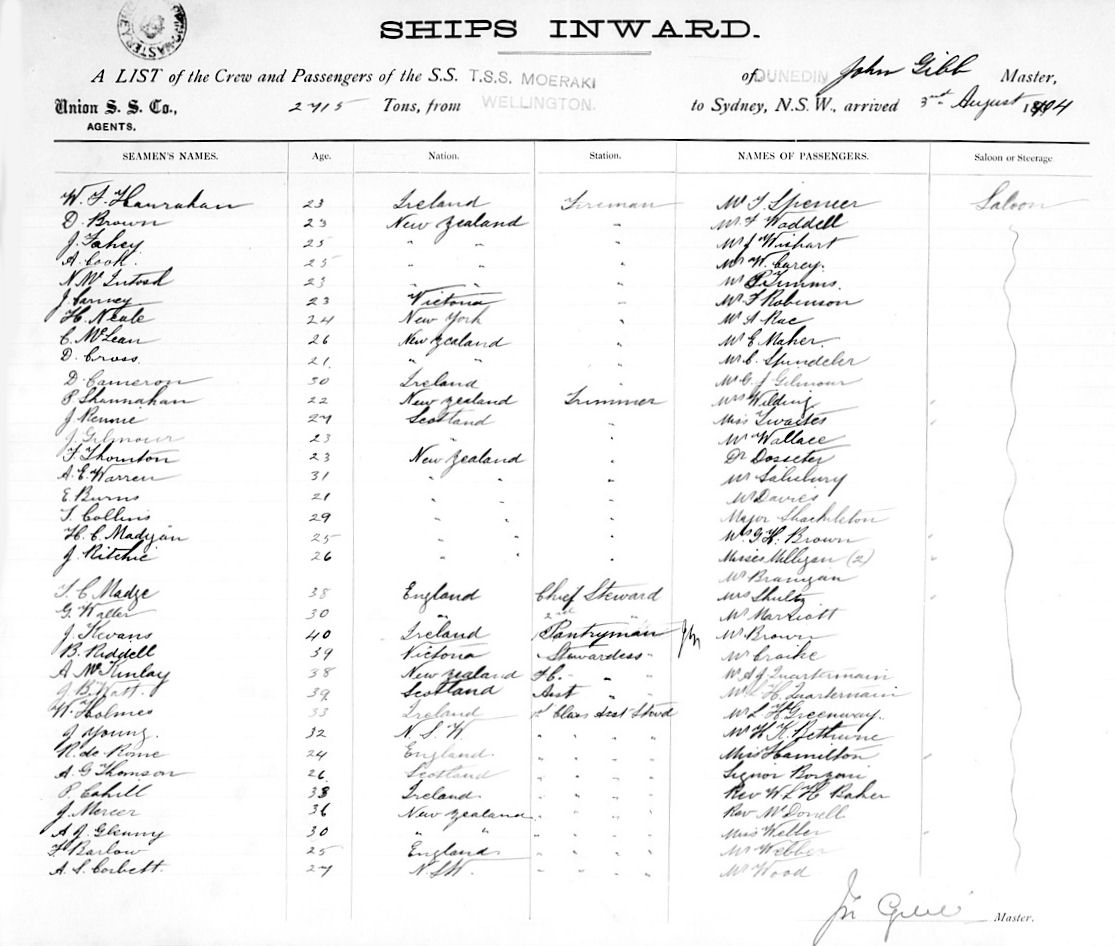 SHIPS INWARD.
A LIST of the Crew and Passengers of the S.S. T.S.S. MOERAKI of DUNEDIN John Gibb Master,
Union S. S. Co., 2715 Tons, from WELLINGTON. to Sydney, N.S.W., arrived 3rd August 1904
AGENTS.
SEAMEN'S NAMES. Age. Nation. Station. NAMES OF PASSENGERS. Saloon or Steerage
W. F. Hanrahan 23 Ireland Fireman Mr T Spencer Saloon
D. Brown 23 New Zealand " Mr F Waddell
J. Fahey 25 " " " Mr J Wishart
A. Cook 25 " " " Mr W. Carey.
N. McIntosh 23 " " " Mr P. Timms.
J. Carney 23 Victoria " Mr F Robinson
H. Neale 24 New York " Mr A Rae
C. McLean 26 New Zealand " Mr E Maher.
D. Cross 21 " " " Mr C. Spindeler
D. Cameron 30 Ireland " Mr G. J Gilmour
P. Shannahan 22 New Zealand Trimmer Mrs Wilding "
J. Rennie 27 Scotland " Miss Twaites "
J. Gilmour 23 " " Mr Wallace
T. Thornton 23 New Zealand " Dr Dosseter
A. E. Warren 31 " " " Mr Salisbury
E. Burns 21 " " " Mr Davies
T. Collins 29 " " " Major Shackleton
H. C. Madigan 25 " " " Mrs G H. Brown "
J. Ritchie 26 " " " Misses Milligan (2) "
Mr Branigan
T. C. Madge 38 England Chief Steward Mrs Shultz "
G. Waller 30 " 2nd " Mr Marriott
J. Kevans 40 Ireland Pantryman Mr Brown
B. Riddell 39 Victoria Stewardess Mr Craike
A McKinlay 38 New Zealand F.C. " " Mr A J Quartermain
J. B. Watt. 39 Scotland Asst " " Mr L H. Quartermain
W. Holmes 33 Ireland 1st Class Asst Stewd Mr L H Greenway.
J. Young. 32 N. S. W. " " " " Mr H K. Bethune
R. de Rome 24 England " " " " Miss Hamilton "
A. G Thomson 26 Scotland " " " " Signor
P. Cahill 38 Ireland " " " " Rev W L H Baker
J. Mercer 36 New Zealand " " " " Rev McDonell
A. J. Glenny 30 " " " " " " Miss Webber "
F. Barlow 25 England " " " " Mr Webber
A. S. Corbett 27 N.S.W. " " " " Mr Wood
Jn Gibb Master.